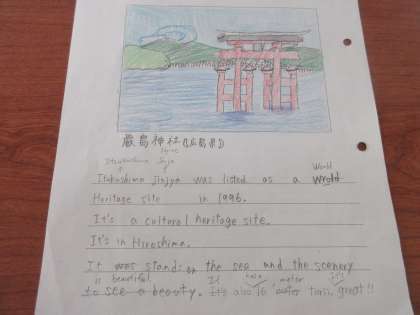 厳島神社(広島県)
Itsukushima Jinja
Itukushima Jinjya was listed as a World
Heritage site in 1996.
It's a cultural heritage site.
It's in Hiroshima.
It was stand: on the sea and the scenery
is beautiful
to see a beauty. It's also 16 meter tall, great!!